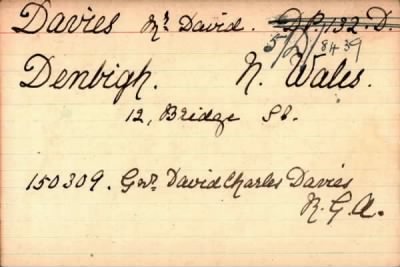 Davies Mr David. D.P. 132. D.
5/2/8439
Denbigh. N. Wales.
12, Bridge St.
150309. Gnr. David Charles Davies
R.G.A.